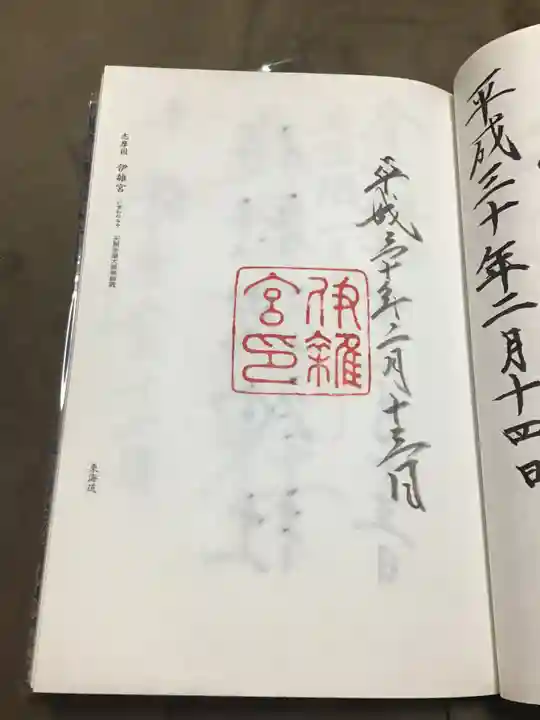 平成三十年二月十四日
平成三十年二月十三日
伊雜
宮印
志摩国 伊雜宮
東海道